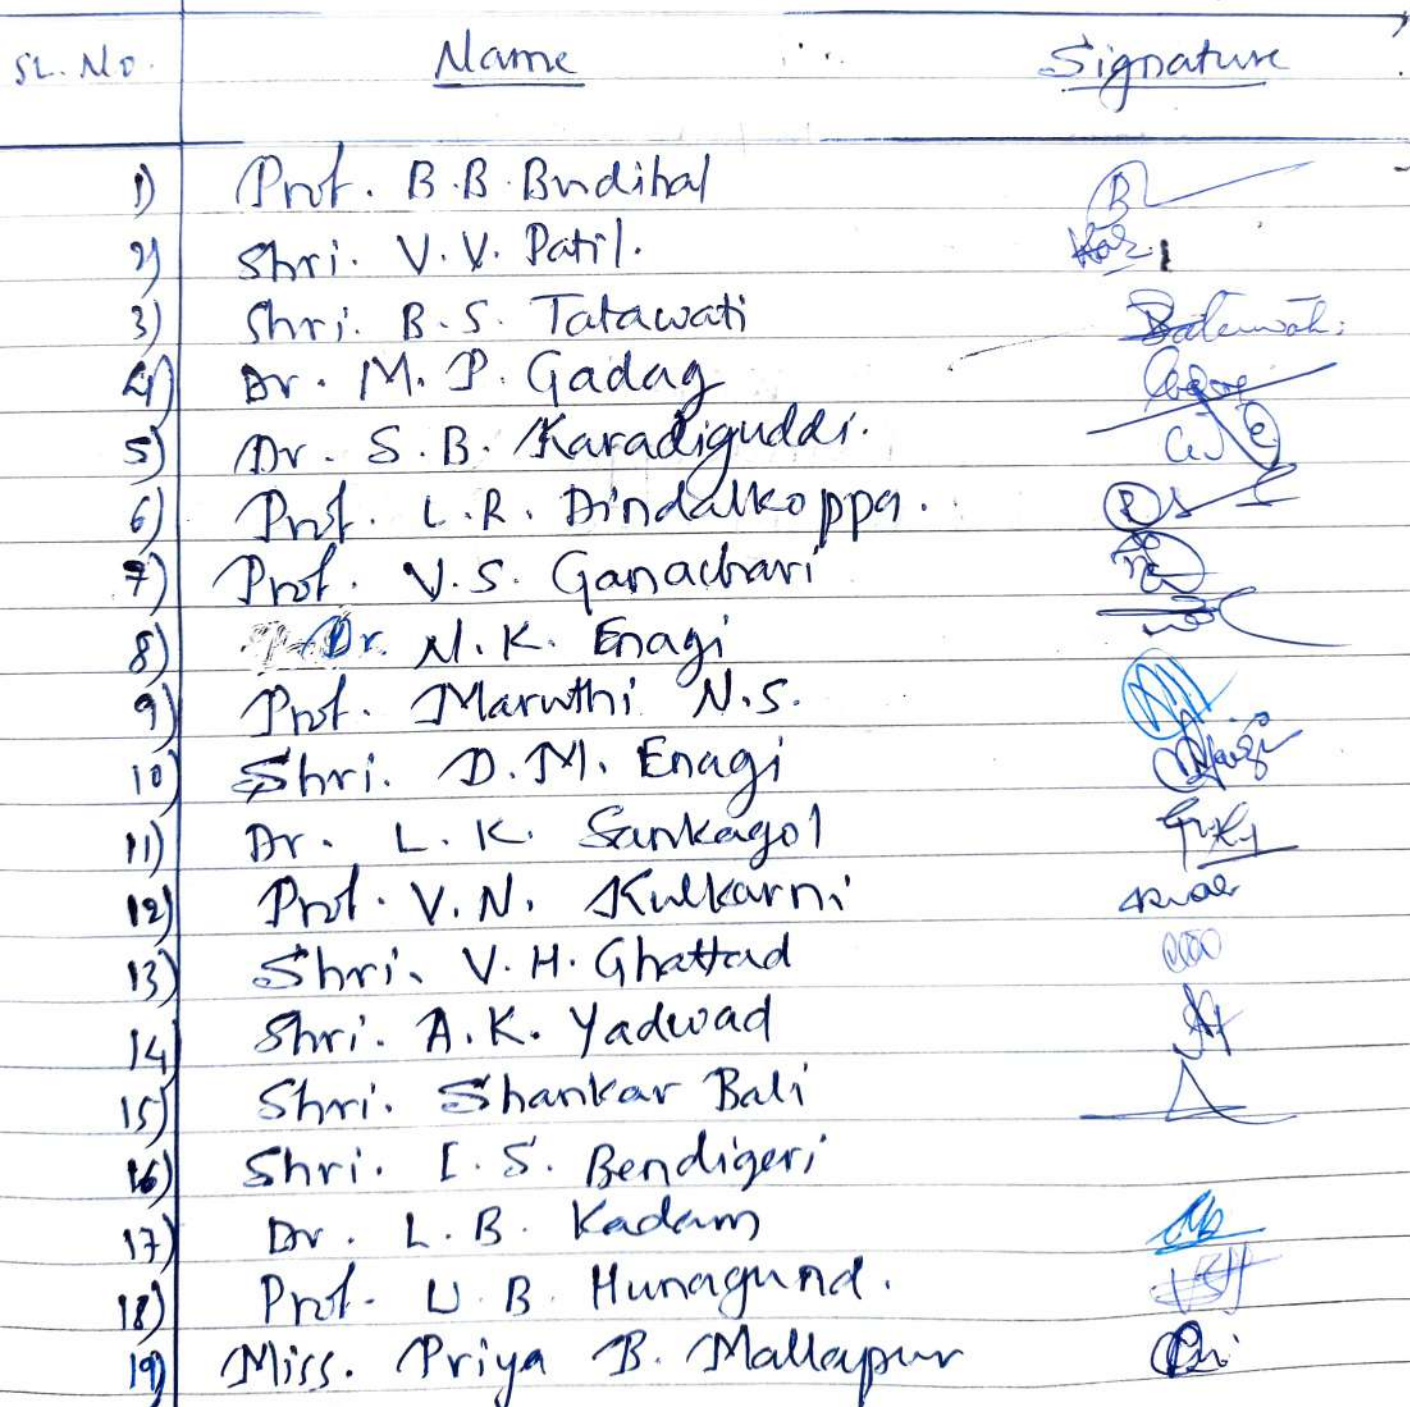 SL. No. Name Signature
1) Prof. B.B. Budihal
2) Shri. V.V. Patil.
3) Shri. B.S. Tatawati
4) Dr. M.P. Gadag
5) Dr. S.B. Karadiguddi.
6) Prof. L.R. Dindalkoppa.
7) Prof. V.S. Ganachari
8) Dr. N.K. Enagi
9) Prof. Maruthi N.S.
10) Shri. D.M. Enagi
11) Dr. L.K. Sankagol
12) Prof. V.N. Kulkarni
13) Shri. V.H. Ghattad
14) Shri. A.K. Yadwad
15) Shri. Shankar Bali
16) Shri. I.S. Bendigeri
17) Dr. L.B. Kadam
18) Prof. U.B. Hunagund.
19) Miss. Priya B. Mallapur